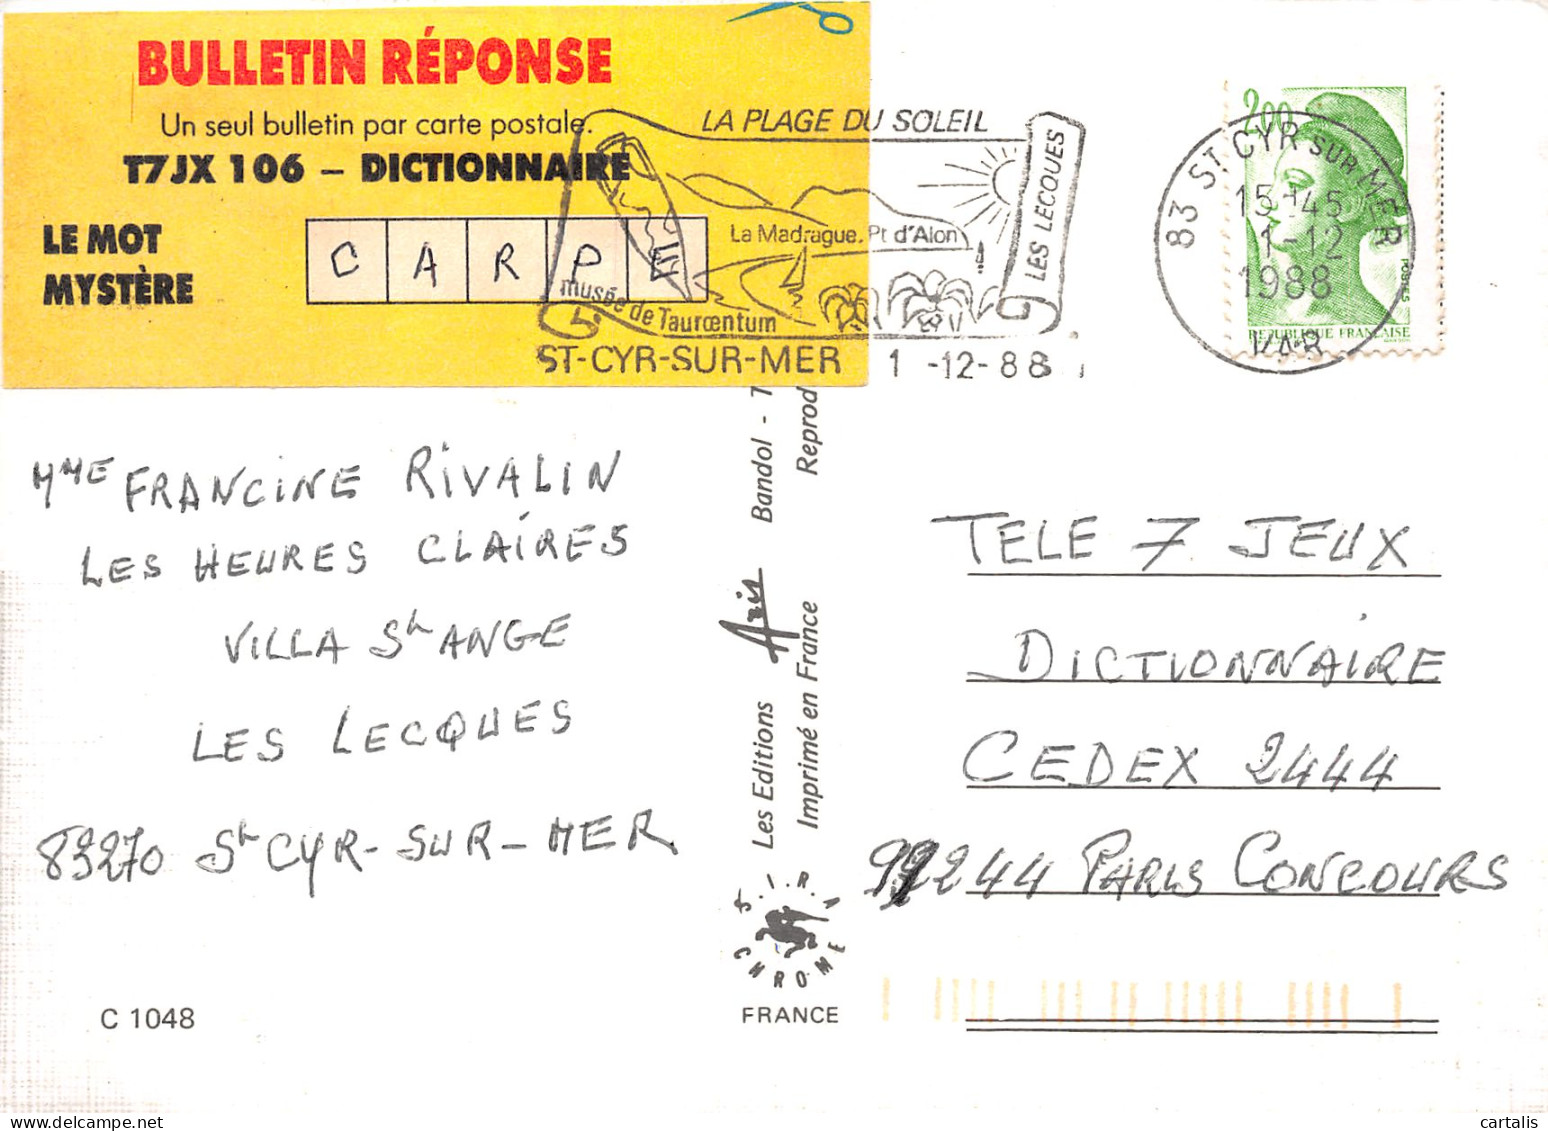 BULLETIN RÉPONSE
Un seul bulletin par carte postale.
T7JX 106 – DICTIONNAIRE
LE MOT
MYSTÈRE
C A R P E
LA PLAGE DU SOLEIL
LES LECQUES
La Madrague. Pt d'Alon
musée de Tauroentum
ST-CYR-SUR-MER 1 -12- 88
2,00
83 ST CYR SUR MER
15H45
1-12
1988
VAR
POSTES
REPUBLIQUE FRANÇAISE
MME FRANCINE RIVALIN
LES HEURES CLAIRES
VILLA St ANGE
LES LECQUES
83270 St CYR-SUR-MER
C 1048
Les Editions Aris Bandol - T
Imprimé en France Reprod
S.I.R.A
CHROME
FRANCE
TELE 7 JEUX
DICTIONNAIRE
CEDEX 2444
99244 PARIS CONCOURS
cartalis